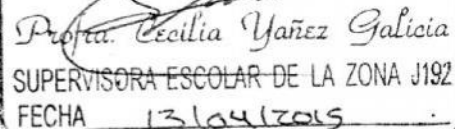 Profra. Cecilia Yañez Galicia
SUPERVISORA ESCOLAR DE LA ZONA J192
FECHA 13/04/2015